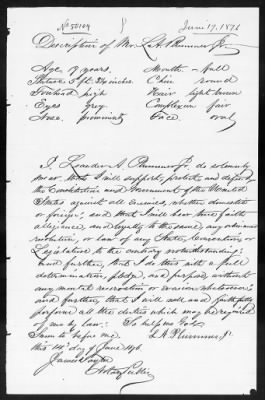 No 50104 June 17, 1876
Description of Mr. L. A. Plummer Jr.
Age, 19 years, Mouth - full
Stature 5 ft. inches Chin round
Forehead high Hair light brown
Eyes grey Complexion fair
Nose prominent Face oval
I, Leander A. Plummer Jr. do solemnly
swear that I will support, protect and defend
the Constitution and Government of the United
States against all enemies, whether domestic
or foreign, and that I will bear true faith,
allegiance, and loyalty to the same, any ordinance,
resolution, or law of any State, Convention or
Legislature to the contrary notwithstanding;
and further, that I do this with a full
determination, pledge, and purpose, without
any mental reservation or evasion whatsoever;
and further, that I will well and faithfully
perform all the duties which may be required
of me by law. So help me God.
Sworn to before me L. A. Plummer, Jr.
this 14th day of June 1876
James Taylor
Notary Public